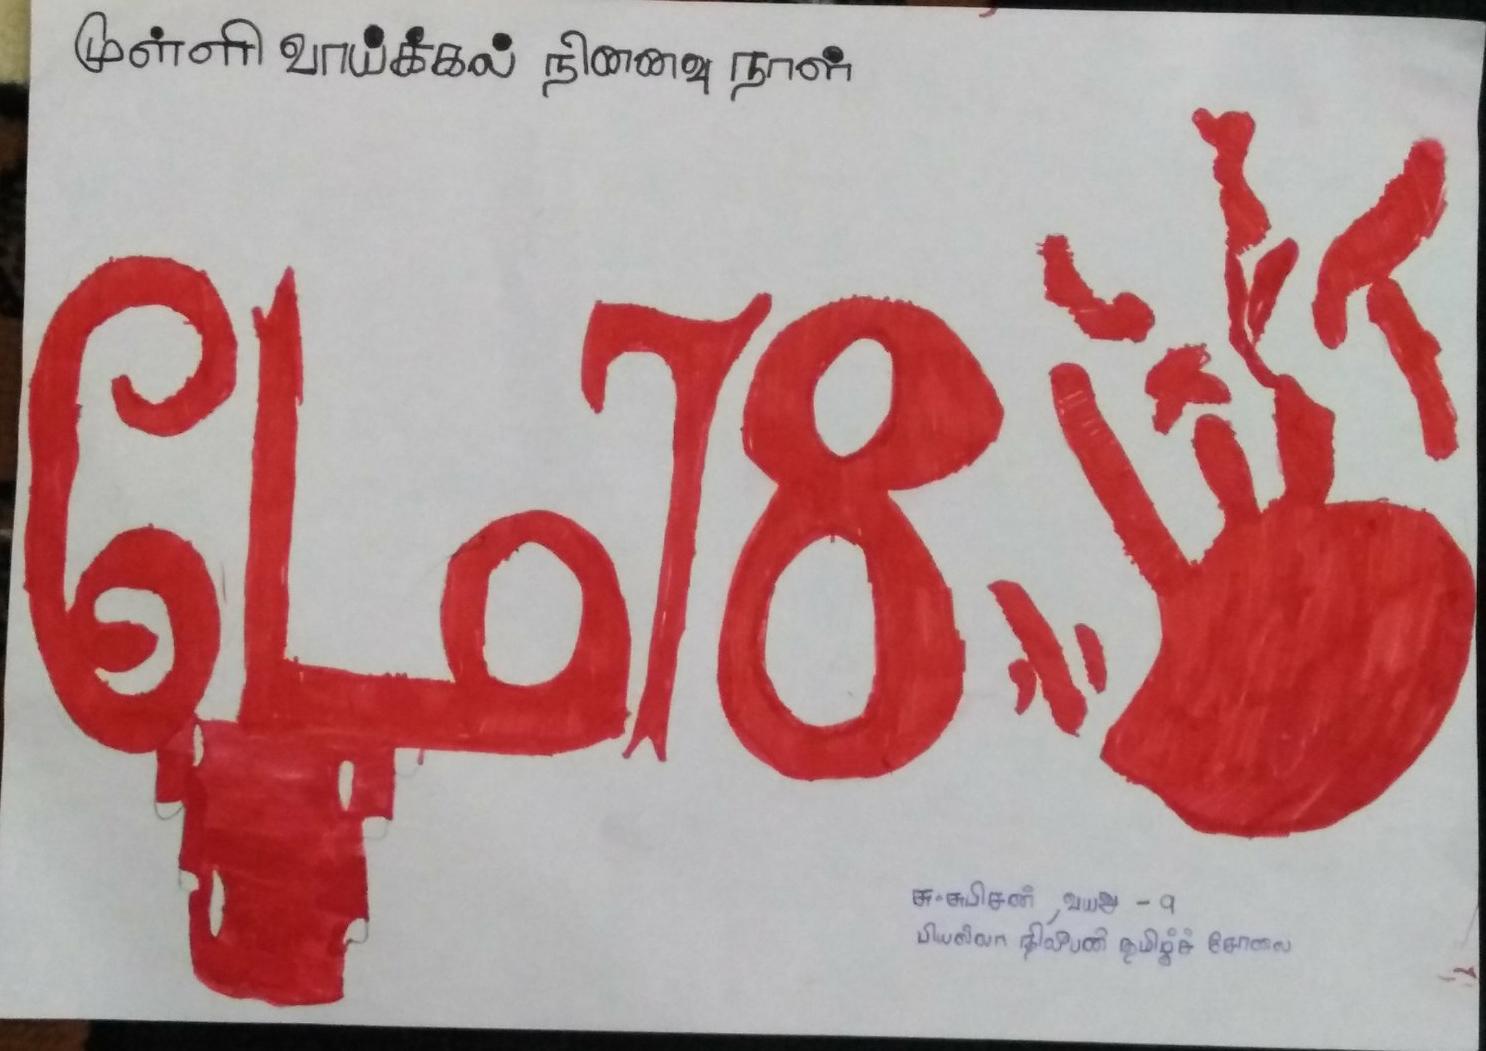 முள்ளி வாய்க்கல் நினைவு நாள்
மே 18
சு.சுபிசன், வயது - 9
பியல்லா திலீபன் தமிழ்ச் சோலை